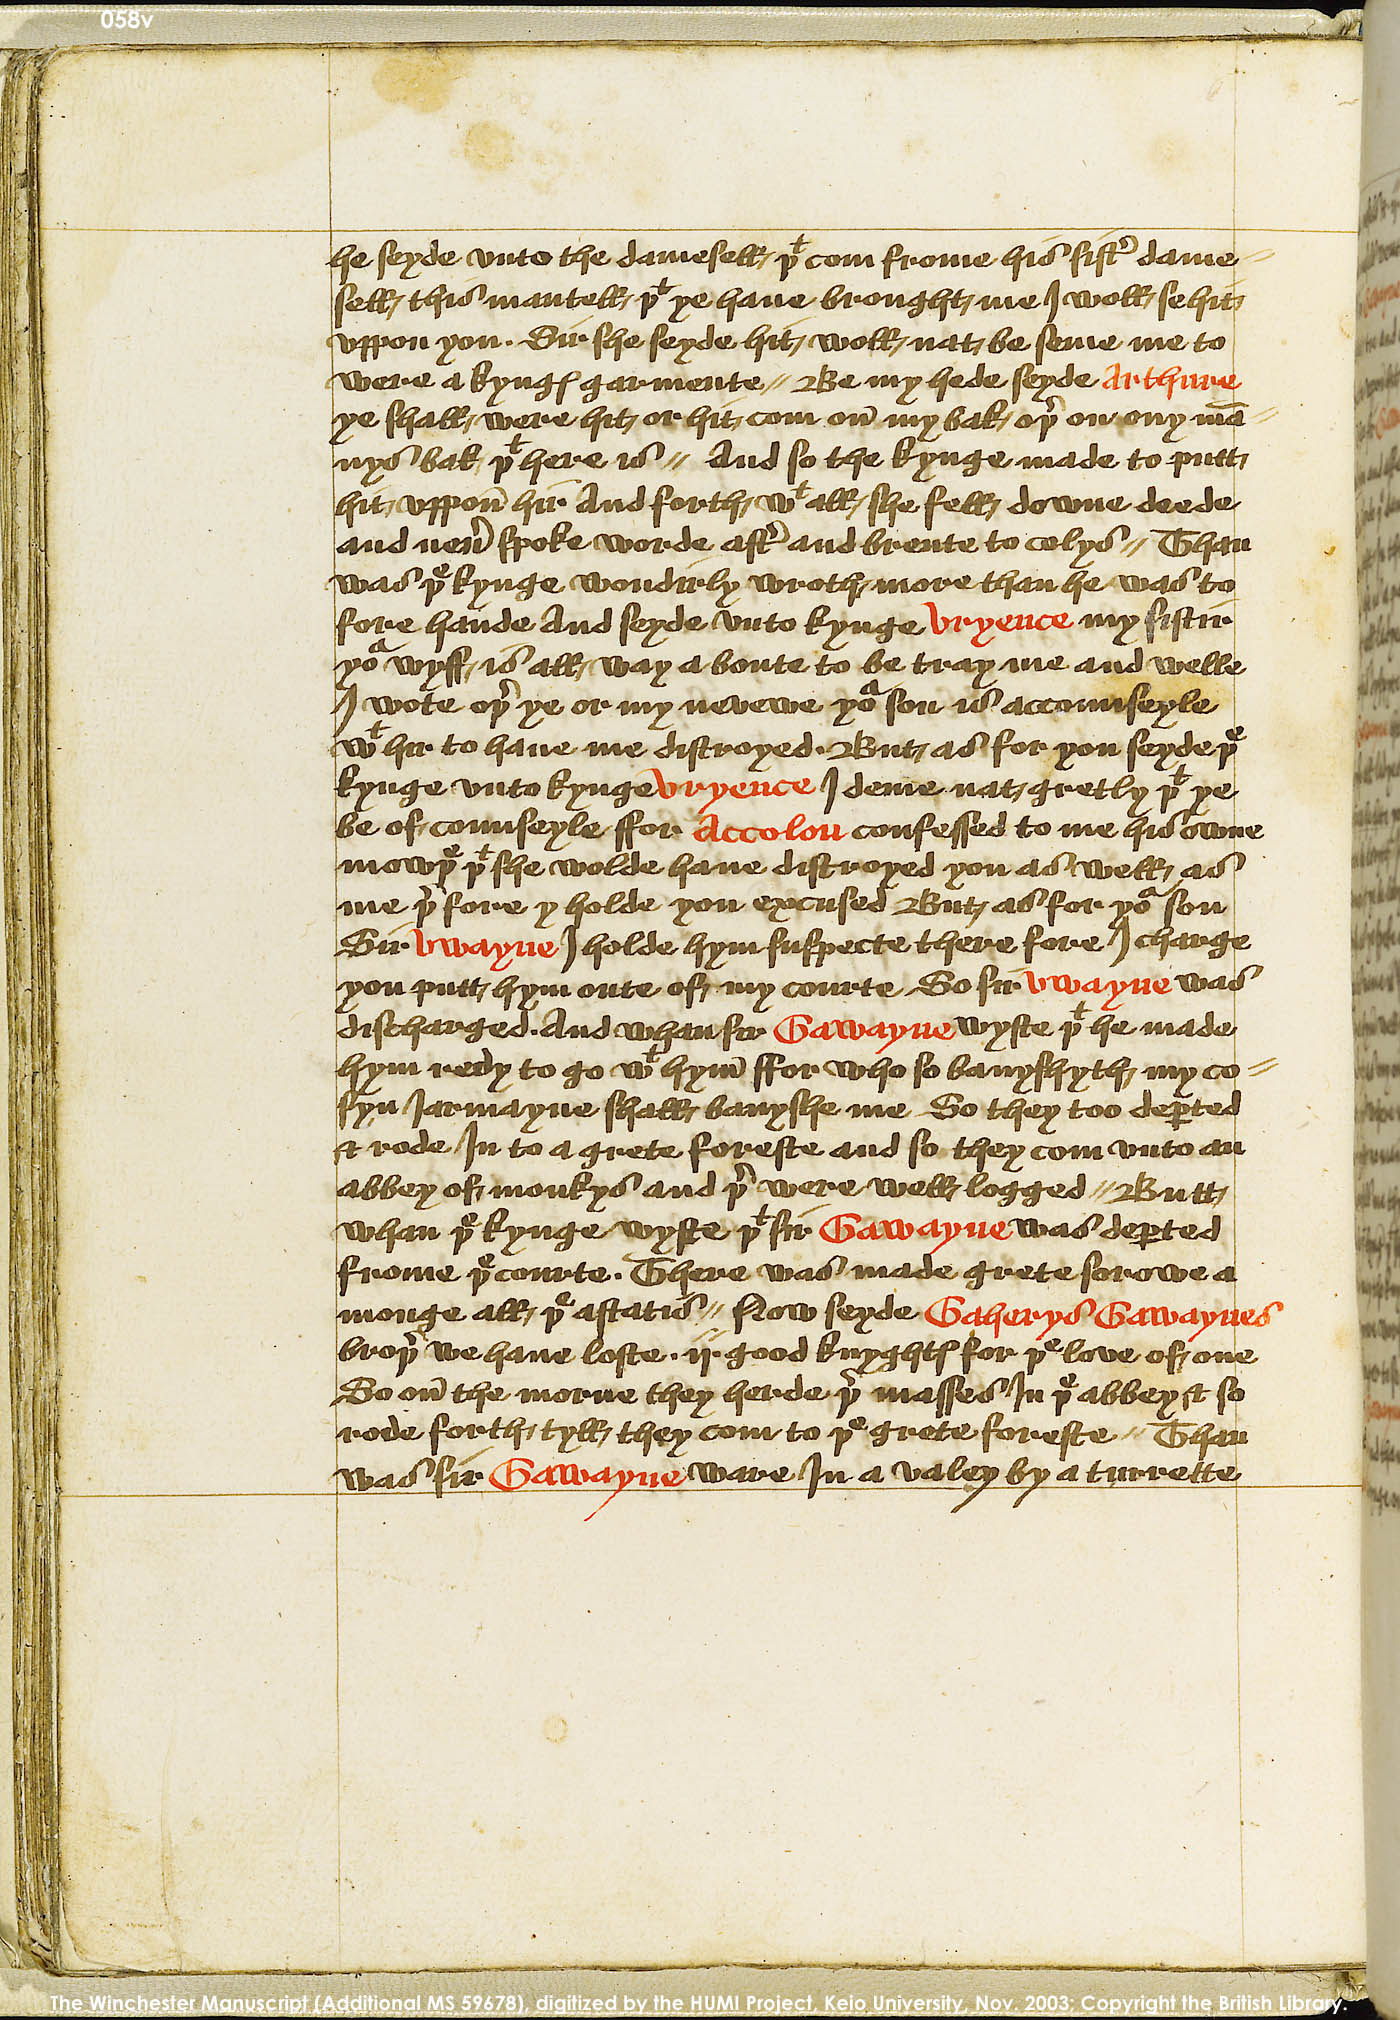 058v
he seyde vnto the damesell þᵗ com frome his sistˀ dame
sell this mantell þᵗ ye haue brought me I woll se hit
vppon you . Sir she seyde hit woll nat be seme me to
were a kyngꝭ garmente // Be my hede seyde Arthure
ye shall were hit or hit com on̄ my bak oþˀ on ony mā
nys bak þᵗ here is // And so the kynge made to putt
hit vppon̄ hir And forth wᵗ all she fell downe deede
and neuˀ spoke worde aftˀ and brente to colys // Than
was þᵉ kynge wondirly wroth more than he was to
fore hande And seyde vnto kynge Vryence my sistir
yoᵃ wyff is all way a boute to be tray me and welle
I wote oþˀ ye or my nevewe yoᵃ son is accounseyle
wᵗ hir to haue me distroyed . But as for you seyde þᵉ
kynge vnto kynge Vryence I deme nat gretly þᵗ ye
be of counseyle ffor Accolon confessed to me his owne
mowþᵉ þᵗ she wolde haue distroyed you as well as
me þˀ fore y holde you excused But as for yoᵃ son
Sir Vwayne I holde hym suspecte there fore I charge
you putt hym oute of my courte So sir Vwayne was
discharged . And whan sir Gawayne wyste þᵗ he made
hym redy to go wᵗ hym̄ ffor who so banyshyth my co =
syn Jarmayne shall banyshe me So they too deꝑted
& rode In to a grete foreste and so they com vnto an
abbey of monkys and þˀ were well logged // Butt
whan þᵉ kynge wyste þᵗ sir Gawayne was deꝑted
frome þᵉ courte . There was made grete sorowe a
monge all þᵉ astatis // Now seyde Gaherys Gawaynes
broþˀ we haue loste . ij . good knyghtꝭ for þᵉ love of one
So on̄ the morne they herde þˀ masses In þᵉ abbey & so
rode forth tyll they com to þᵉ grete foreste // Than
was sir Gawayne ware In a valey by a turrette
The Winchester Manuscript (Additional MS 59678), digitized by the HUMI Project, Keio University, Nov. 2003; Copyright the British Library.